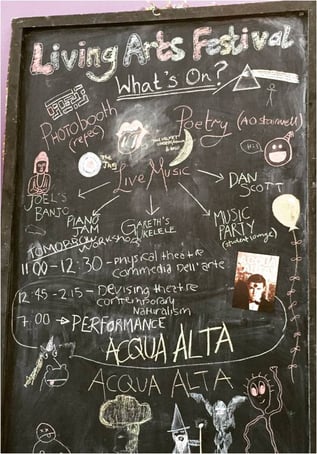 Living Arts Festival
What's On?
PHOTObooth
(refec)
Poetry (AO stairwell)
The Jug
Live Music
JOEL'S
BANJO
PIANO
JAM
GARETH'S
UKELELE
MUSIC
PARTY
(student lounge)
DAN
SCOTT
TOMORROW
WORKSHOPS
11 00 - 12:30 - physical theatre
commedia Dell'arte
12:45 - 2:15 - Devising theatre
contemporary
Naturalism
7:00 → PERFORMANCE
ACQUA ALTA
ACQUA ALTA